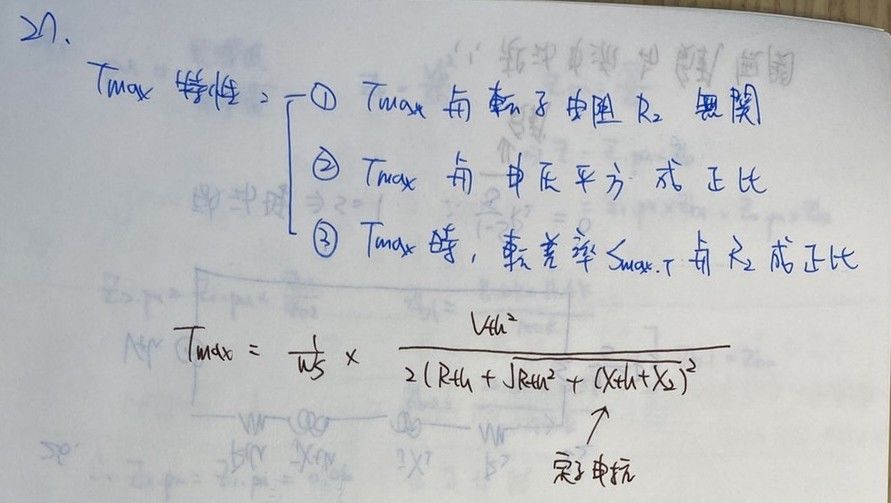 27.
Tmax 特性: ① Tmax 與 転子 电阻 R₂ 無関
② Tmax 與 电压平方 成 正比
③ Tmax 時, 転差率 Smax.T 與 R₂ 成正比
Tmax = 1/ωs × Vth² / 2(Rth + √Rth² + (Xth+X₂)²)
定子电抗